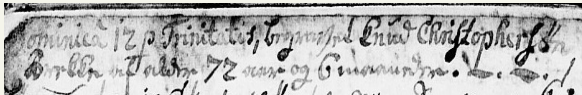 Dominica 12 p. Trinitatis, begravet Knud Christophers:
Brekke, af alder 72 aar og 6 maaneder.